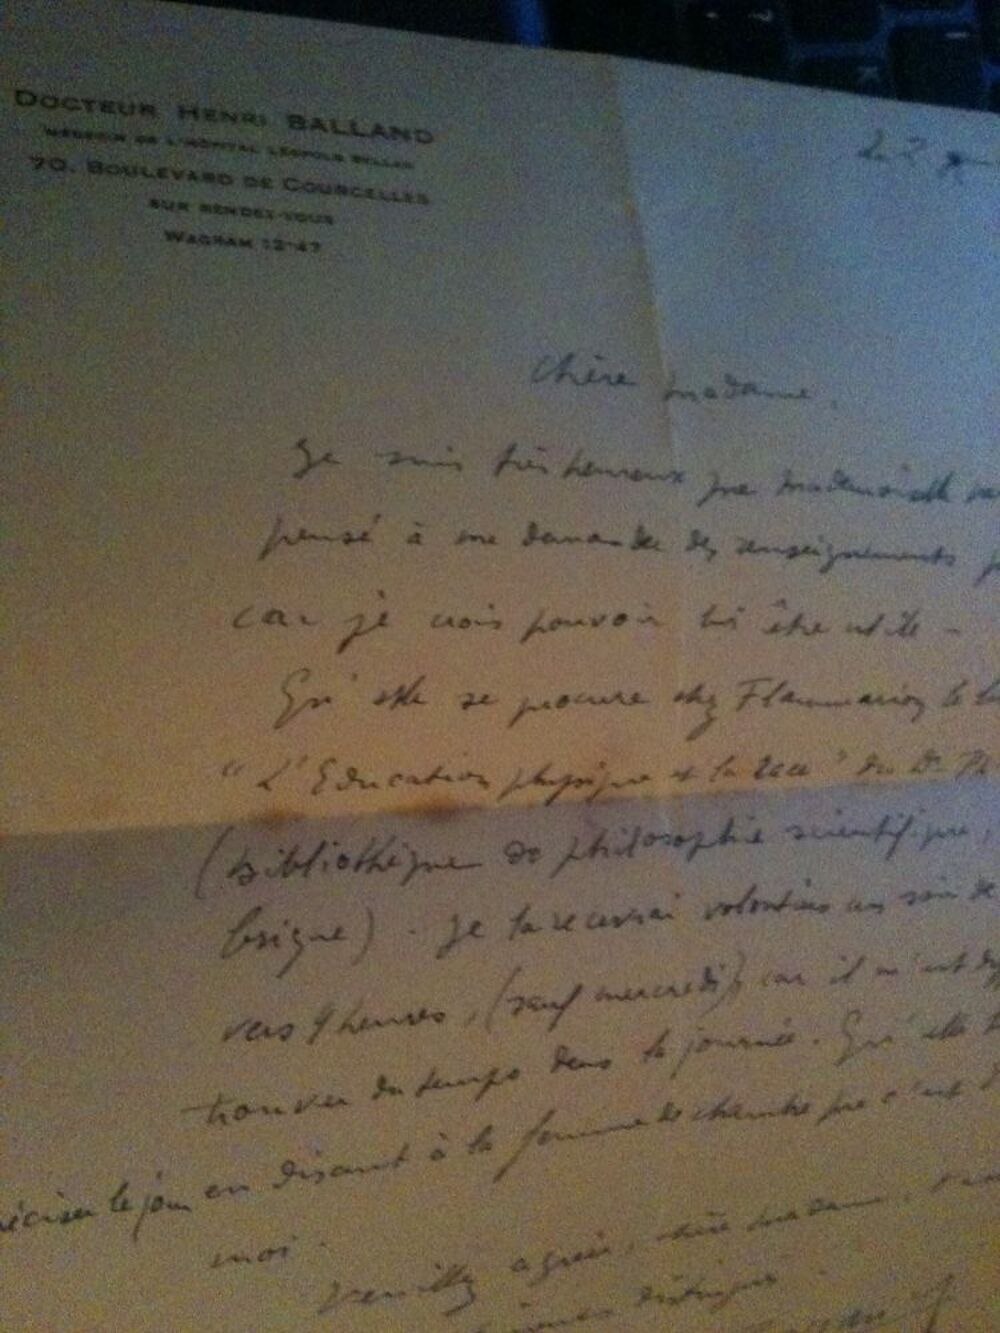 DOCTEUR HENRI BALLAND
MÉDECIN DE L'HÔPITAL LÉOPOLD BELLAN
70, BOULEVARD DE COURCELLES
SUR RENDEZ-VOUS
WAGRAM 12-47
Chère madame,
Je suis très heureux que Mademoiselle
pensé à me demander des renseignements
car je crois pouvoir lui être utile -
Qu'elle se procure chez Flammarion le
"L'Education physique et la race" du Dr
(bibliothèque de philosophie scientifique,
brique). Je la recevrai volontiers un soir
vers 9 heures, (sauf mercredi), car il m'est
trouver du temps dans la journée. Qu'elle
préciser le jour en disant à la femme de chambre que c'est
moi.
Veuillez agréer, chère madame,